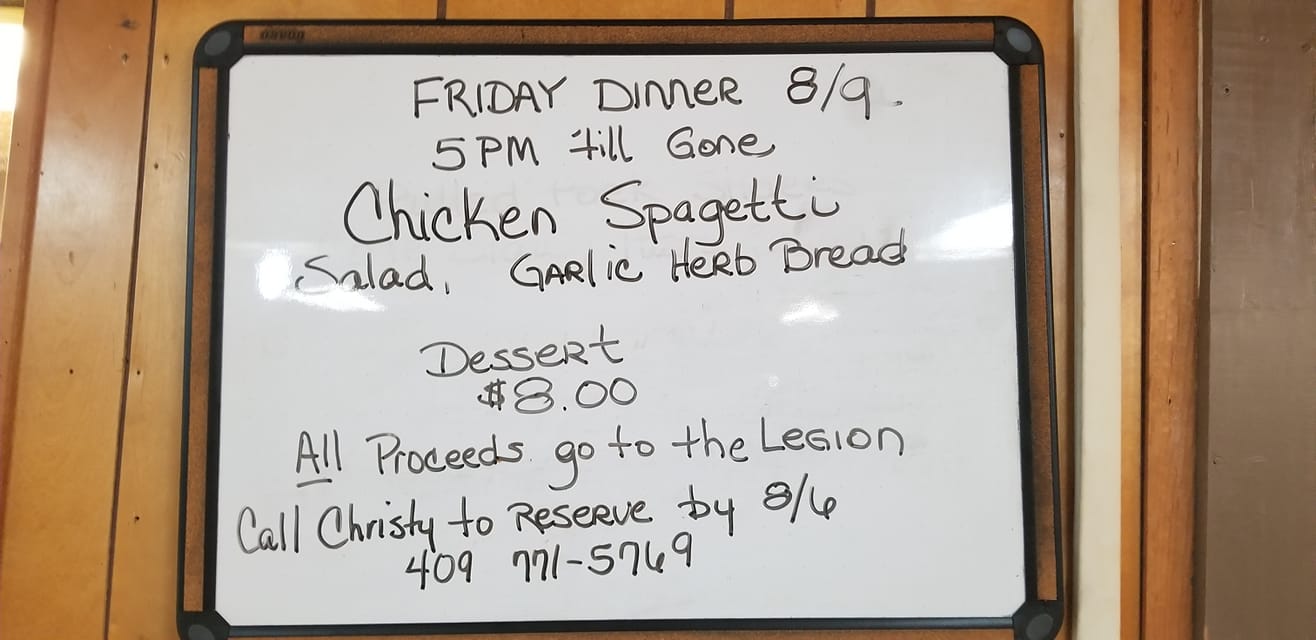 FRIDAY DINNER 8/9.
5PM till Gone
Chicken Spagetti
Salad, GARlic HeRb Bread
DesseRt
$8.00
All Proceeds go to the LeGION
Call Christy to ReseRve by 8/6
409 771-5769